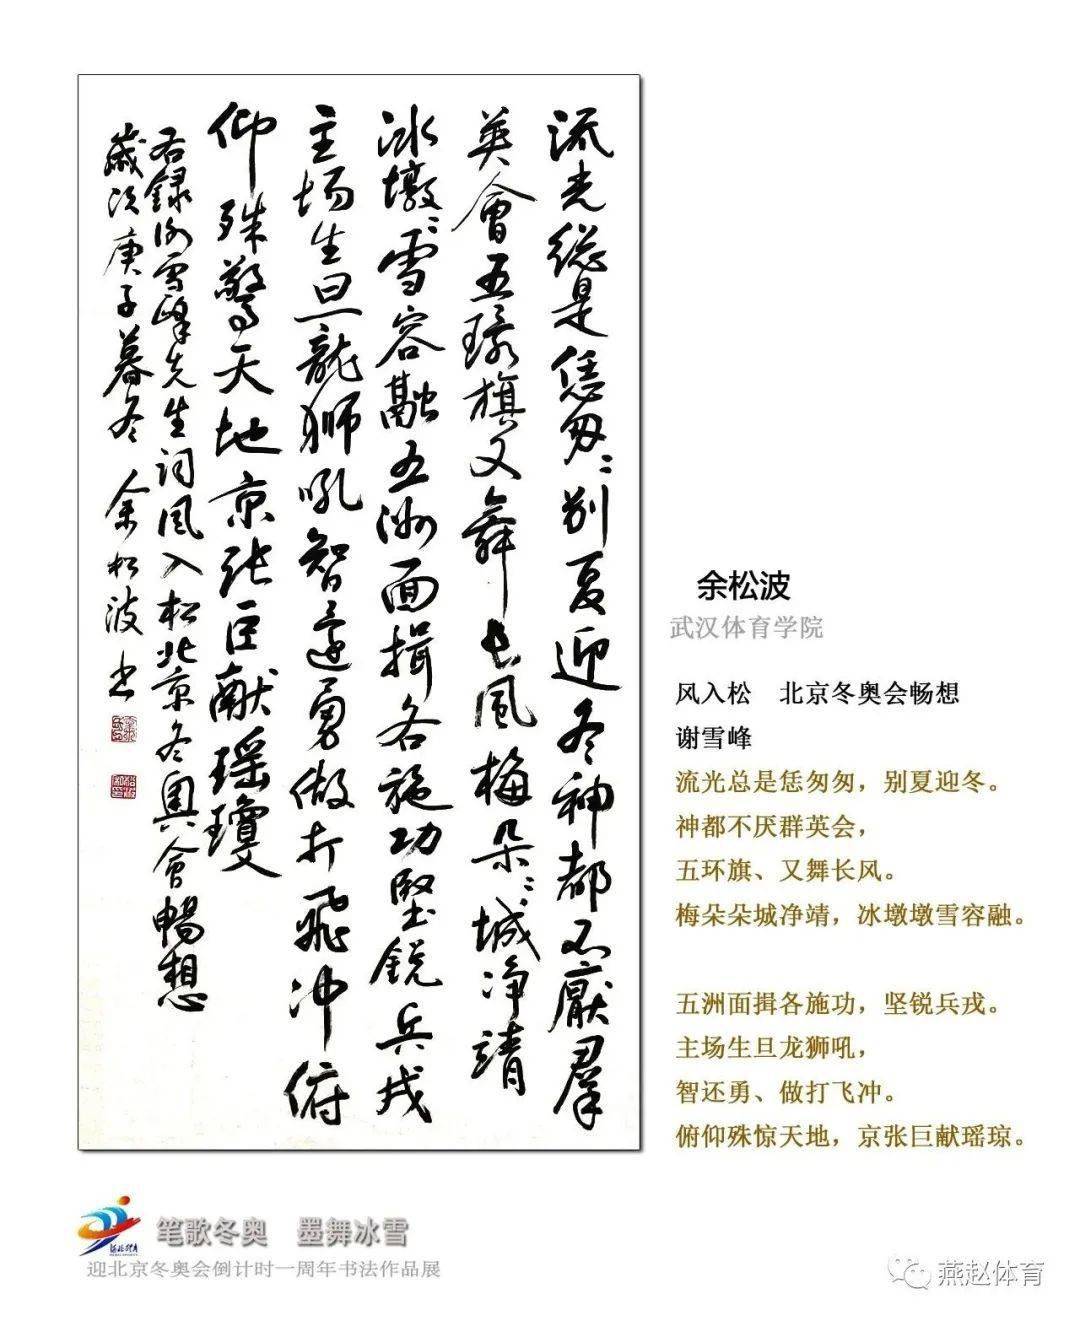 流光総是恁匆〻别夏迎冬神都不厭羣
英會五環旗又舞長風梅朵〻城净靖
冰墩〻雪容融五洲面揖各施功堅銳兵戎
主场生旦龍狮吼智還勇做打飛冲俯
仰殊驚天地京张巨献瑶瓊
右録谢雪峰先生词风入松北京冬奥會暢想
歲次庚子暮冬 余松波书
余松波
武汉体育学院
风入松　北京冬奥会畅想
谢雪峰
流光总是恁匆匆，别夏迎冬。
神都不厌群英会，
五环旗、又舞长风。
梅朵朵城净靖，冰墩墩雪容融。
五洲面揖各施功，坚锐兵戎。
主场生旦龙狮吼，
智还勇、做打飞冲。
俯仰殊惊天地，京张巨献瑶琼。
笔歌冬奥　墨舞冰雪
迎北京冬奥会倒计时一周年书法作品展
燕赵体育